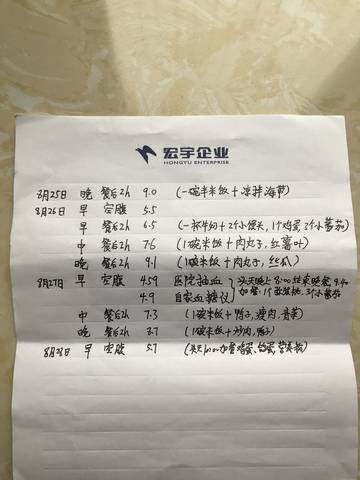 宏宇企业
HONGYU ENTERPRISE
8月25日 晚 餐后2h 9.0 (一碗半米饭+凉拌海带)
8月26日 早 空腹 5.5
早 餐后2h 6.5 (一杯牛奶+2个小馒头,1个鸡蛋,2个小蕃茄)
中 餐后2h 7.6 (1碗米饭+肉丸子,红薯叶)
晚 餐后2h 9.1 (1碗米饭+肉丸子,丝瓜)
8月27日 早 空腹 4.59 医院抽血 头天晚上8:00结束晚餐,9.40
4.9 自家血糖仪 加餐:1个 3个小蕃茄
中 餐后2h 7.3 (1碗米饭+鸭子,瘦肉,青菜)
晚 餐后2h 8.7 (1碗米饭+炒肉,鸭子)
8月28日 早 空腹 5.7 (头天10:00加餐鸡蛋,